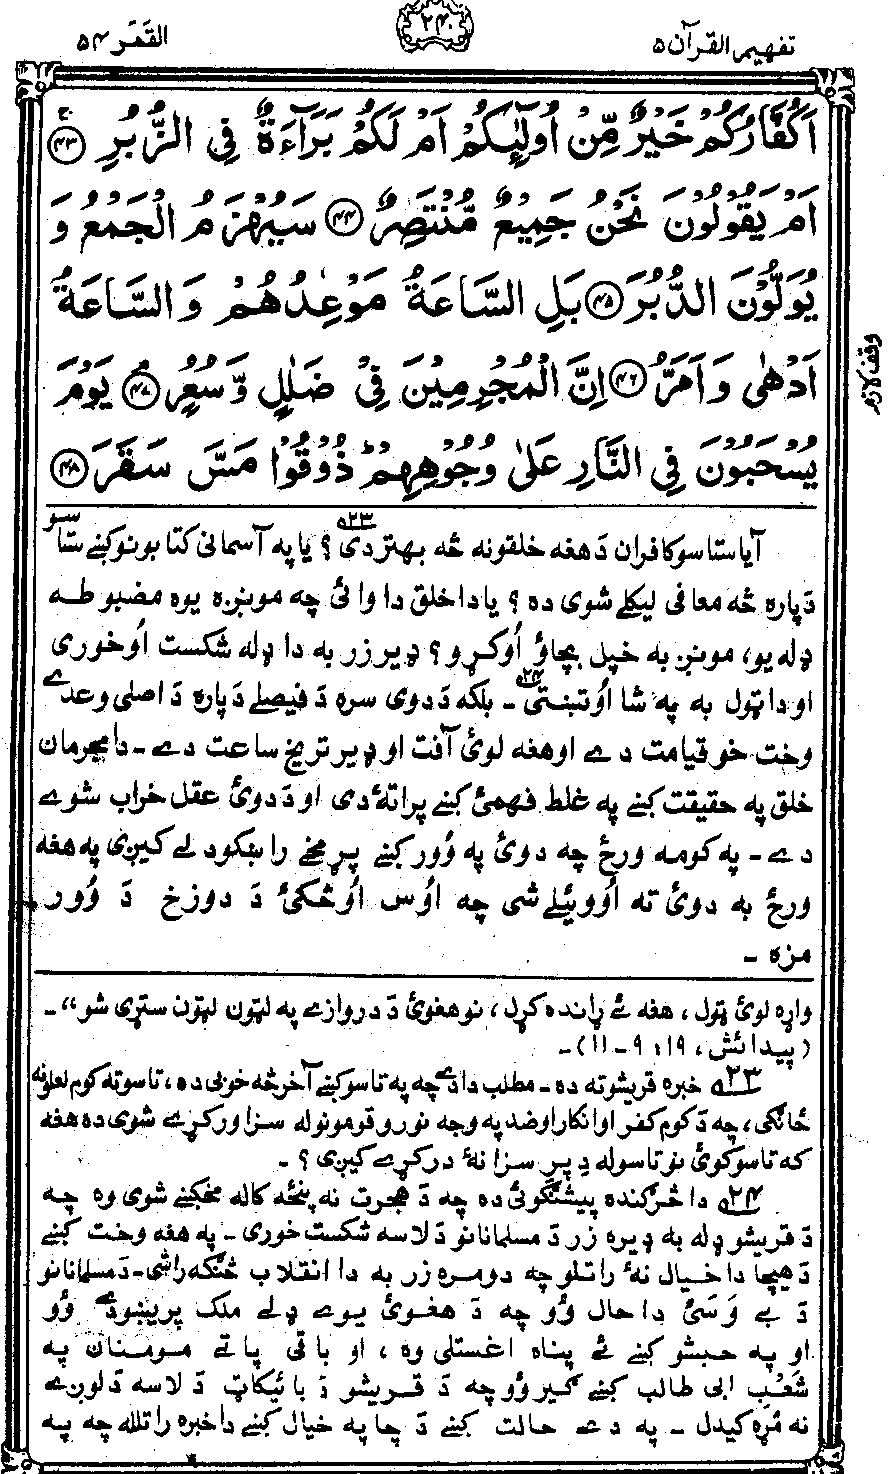 تفهیم القرآن ۵
۲۴۰
القمر ۵۴
اَكُفَّارُكُمْ خَيْرٌ مِّنْ اُولٰٓئِكُمْ اَمْ لَكُمْ بَرَآءَةٌ فِى الزُّبُرِ ۴۳ ج
اَمْ يَقُوْلُوْنَ نَحْنُ جَمِيْعٌ مُّنْتَصِرٌ ۴۴ سَيُهْزَمُ الْجَمْعُ وَ
يُوَلُّوْنَ الدُّبُرَ ۴۵ بَلِ السَّاعَةُ مَوْعِدُهُمْ وَالسَّاعَةُ
اَدْهٰى وَاَمَرُّ ۴۶ اِنَّ الْمُجْرِمِيْنَ فِىْ ضَلٰلٍ وَّسُعُرٍ ۴۷ يَوْمَ
وقف لازم
يُسْحَبُوْنَ فِى النَّارِ عَلٰى وُجُوْهِهِمْ ط ذُوْقُوْا مَسَّ سَقَرَ ۴۸
آیا ستاسو کافران دَ هغه خلقونه څه بهتر دی ۲۳؟ یا په آسمانی کتابونو کښے ستاسو
دَپاره څه معافی لیکلے شوی ده ؟ یا دا خلق دا وائی چه مونږه یوه مضبوطه
ډله یو، مونږ به خپل بچاؤ اُوکړو؟ ډیر زر به دا ډله شکست اُوخوری
او دا ټول به په شا اُوتښتی ۲۴ ـ بلکه دَ دوی سره دَ فیصلے دَپاره دَ اصلی وعدے
وخت خو قیامت دے او هغه لوئ آفت او ډیر تریخ ساعت دے ـ دا مجرمان
خلق په حقیقت کښے په غلط فهمئ کښے پراتهٔ دی او دَ دوئ عقل خراب شوے
دے ـ په کومه ورځ چه دوئ په وُور کښے پړمخے را ښکودلے کیږی په هغه
ورځ به دوئ ته اُووئیلے شی چه اوُس اُوڅکئ دَ دوزخ دَ وُور
مزه ـ
واړه لوئ ټول، هغه ئے ړانده کړل، نو هغوئ دَ دروازے په لټون لټون ستړی شو“ ـ
(پیدائش، ۱۹: ۹ ـ ۱۱) ـ
۲۳ خبره قریشوته ده ـ مطلب دادے چه په تاسو کښے آخر څه خوبی ده، تاسوته کوم لعلونه
ځانگی، چه دَ کوم کفر او انکار او ضد په وجه نورو قومونو له سزا ورکړے شوی ده هغه
که تاسو کوئ نو تاسو له دِ پر سزا نهٔ در کړے کیږی ؟ ـ
۲۴ دا څرگنده پیشنگوئی ده چه دَ هجرت نه پنځه کاله مخکښے شوی وه چه
دَ قریشو ډله به ډیره زر دَ مسلمانانو دَ لاسه شکست خوری ـ په هغه وخت کښے
دَ هیچا دا خیال نهٔ راتلو چه دومره زر به دا انقلاب څنگه راشی ـ دَ مسلمانانو
دَ بے وَسئ دا حال وُو چه دَ هغوئ یوے ډلے ملک پریښودے وُو
او په حبشو کښے ئے پناه اغستلی وه، او باقی پاتے مومنان په
شَعْبِ ابی طالب کښے گیر وُو چه دَ قریشو دَ بائیکاټ دَ لاسه دَ لوږے
نه مړه کیدل ـ په دے حالت کښے دَ چا په خیال کښے دا خبره راتلله چه په